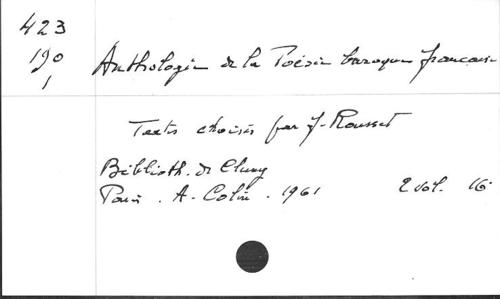 423
190
1
Anthologie de la Poésie baroque française
Textes choisis par J. Rousset
Biblioth. de Cluny
Paris. A. Colin. 1961 2 vol. 16°